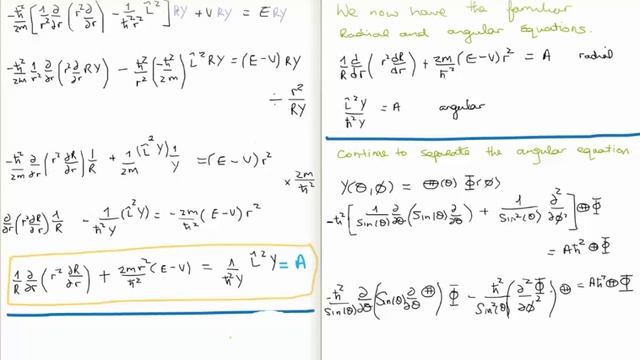 -ħ²/2m [1/r² ∂/∂r (r² ∂/∂r) - 1/ħ²r² L̂²] RY + V RY = E RY
-ħ²/2m 1/r² ∂/∂r (r² ∂/∂r) RY - ħ²/r² (-ħ²/2m) L̂² RY = (E-V) RY
÷ r²/RY
-ħ²/2m ∂/∂r (r² ∂R/∂r) 1/R + 1/2m (L̂² Y) 1/Y = (E-V) r²
× 2m/ħ²
∂/∂r (r² ∂R/∂r) 1/R - 1/ħ²Y (L̂² Y) = -2m/ħ² (E-V) r²
1/R ∂/∂r (r² ∂R/∂r) + 2mr²/ħ² (E-V) = 1/ħ²Y L̂² Y = A
We now have the familiar
Radial and angular Equations.
1/R d/dr (r² dR/dr) + 2m/ħ² (E-V) r² = A radial
L̂² Y/ħ² Y = A angular
Continue to separate the angular equation
Y(θ,φ) = Θ(θ) Φ(φ)
-ħ² [1/Sin(θ) ∂/∂θ (Sin(θ) ∂/∂θ) + 1/Sin²(θ) ∂²/∂φ²] Θ Φ
= Aħ² Θ Φ
-ħ²/Sin(θ) ∂/∂θ (Sin(θ) ∂/∂θ Θ) Φ - ħ²/Sin²(θ) (∂²Φ/∂φ²) Θ = Aħ² Θ Φ